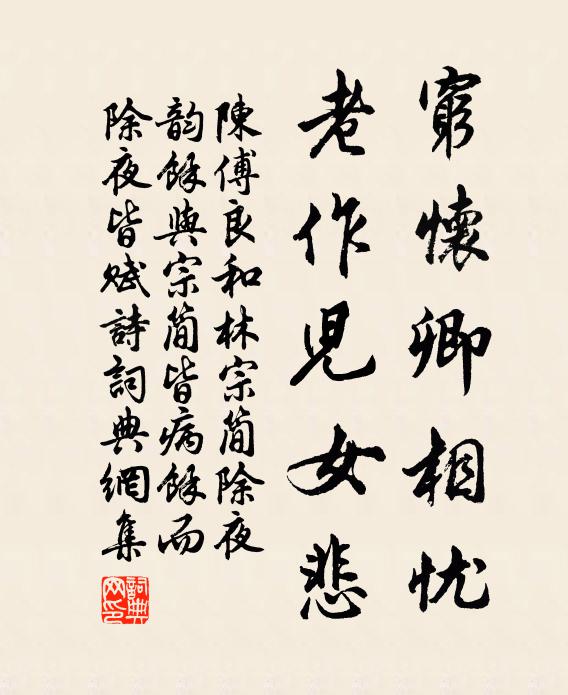 窮懷卿相忧
老作児女悲
陳傅良和林宗簡除夜
韵餘與宗簡皆病餘而
除夜皆赋詩詞典網集
詞典
网印